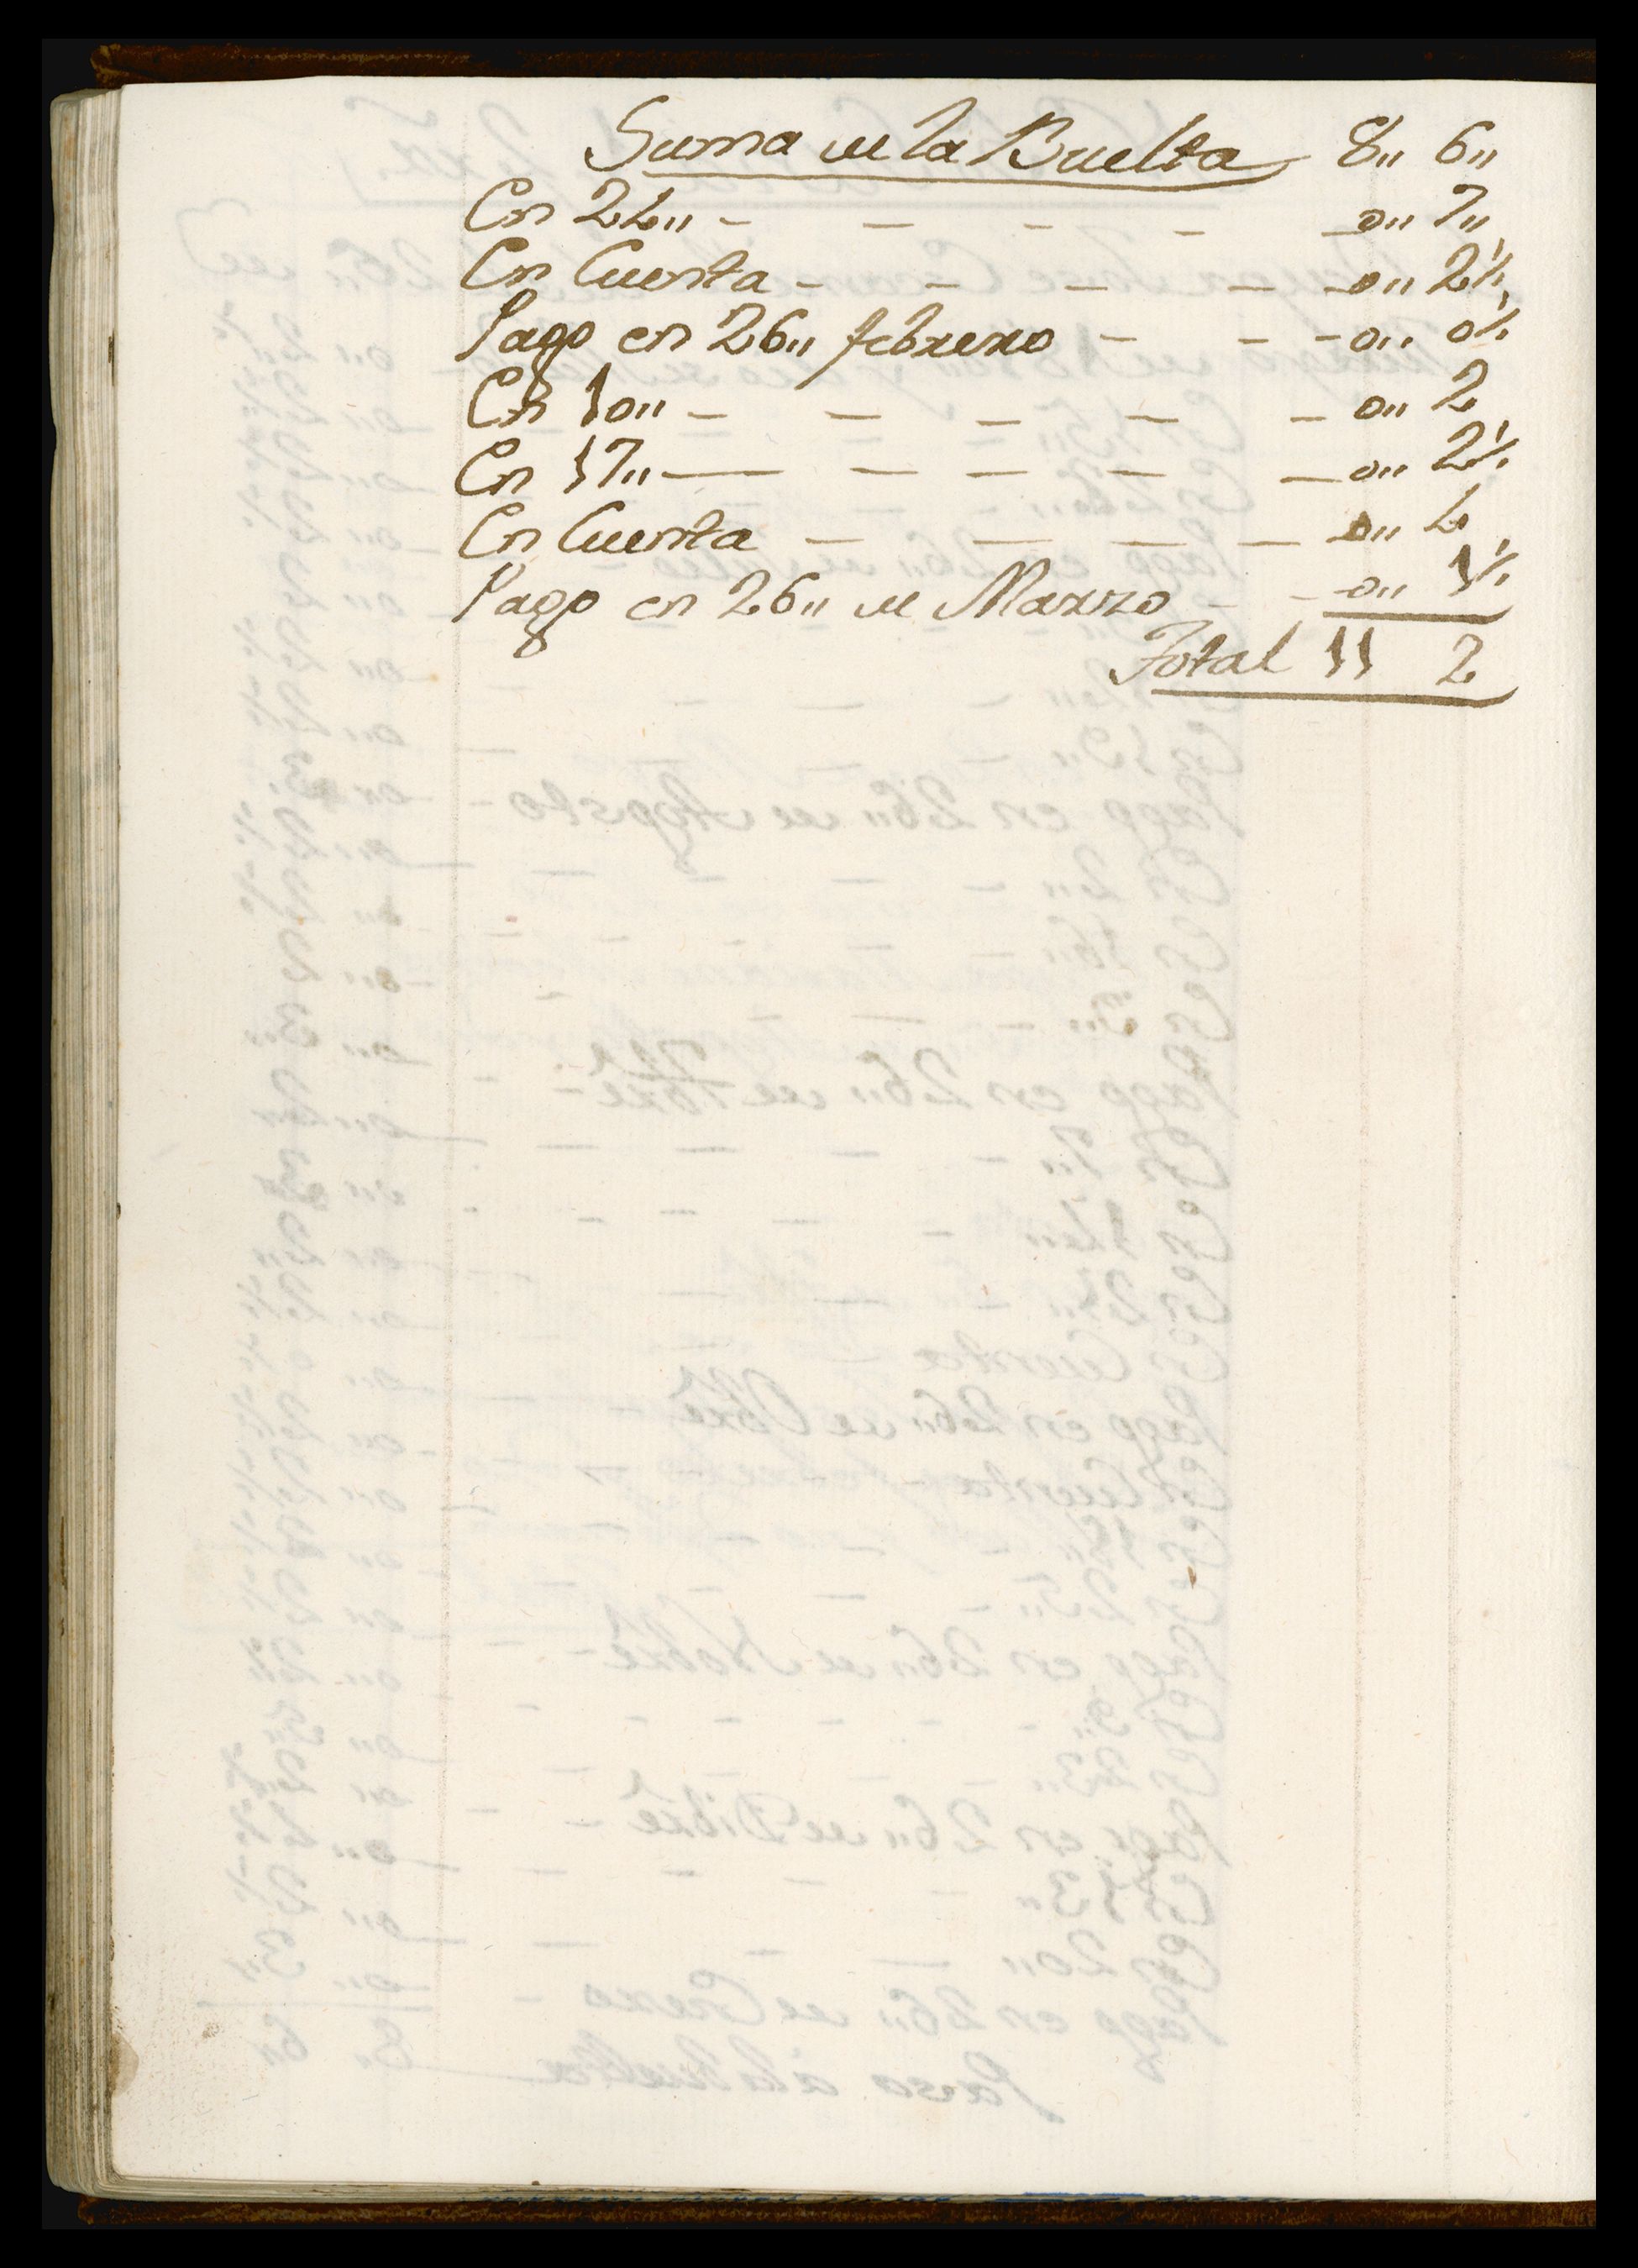 Suma de la Buelta 8,, 6,,
En 24,, - - - - - 0,, 7,,
En Cuenta - - - - - 0,, 2½
Pago en 26,, febrero - - - 0,, 0½
En 10,, - - - - - 0,, 2
En 17,, - - - - - 0,, 2½
En Cuenta - - - - 0,, 4
Pago en 26,, de Marzo - - 0,, 1½
Total 11 2